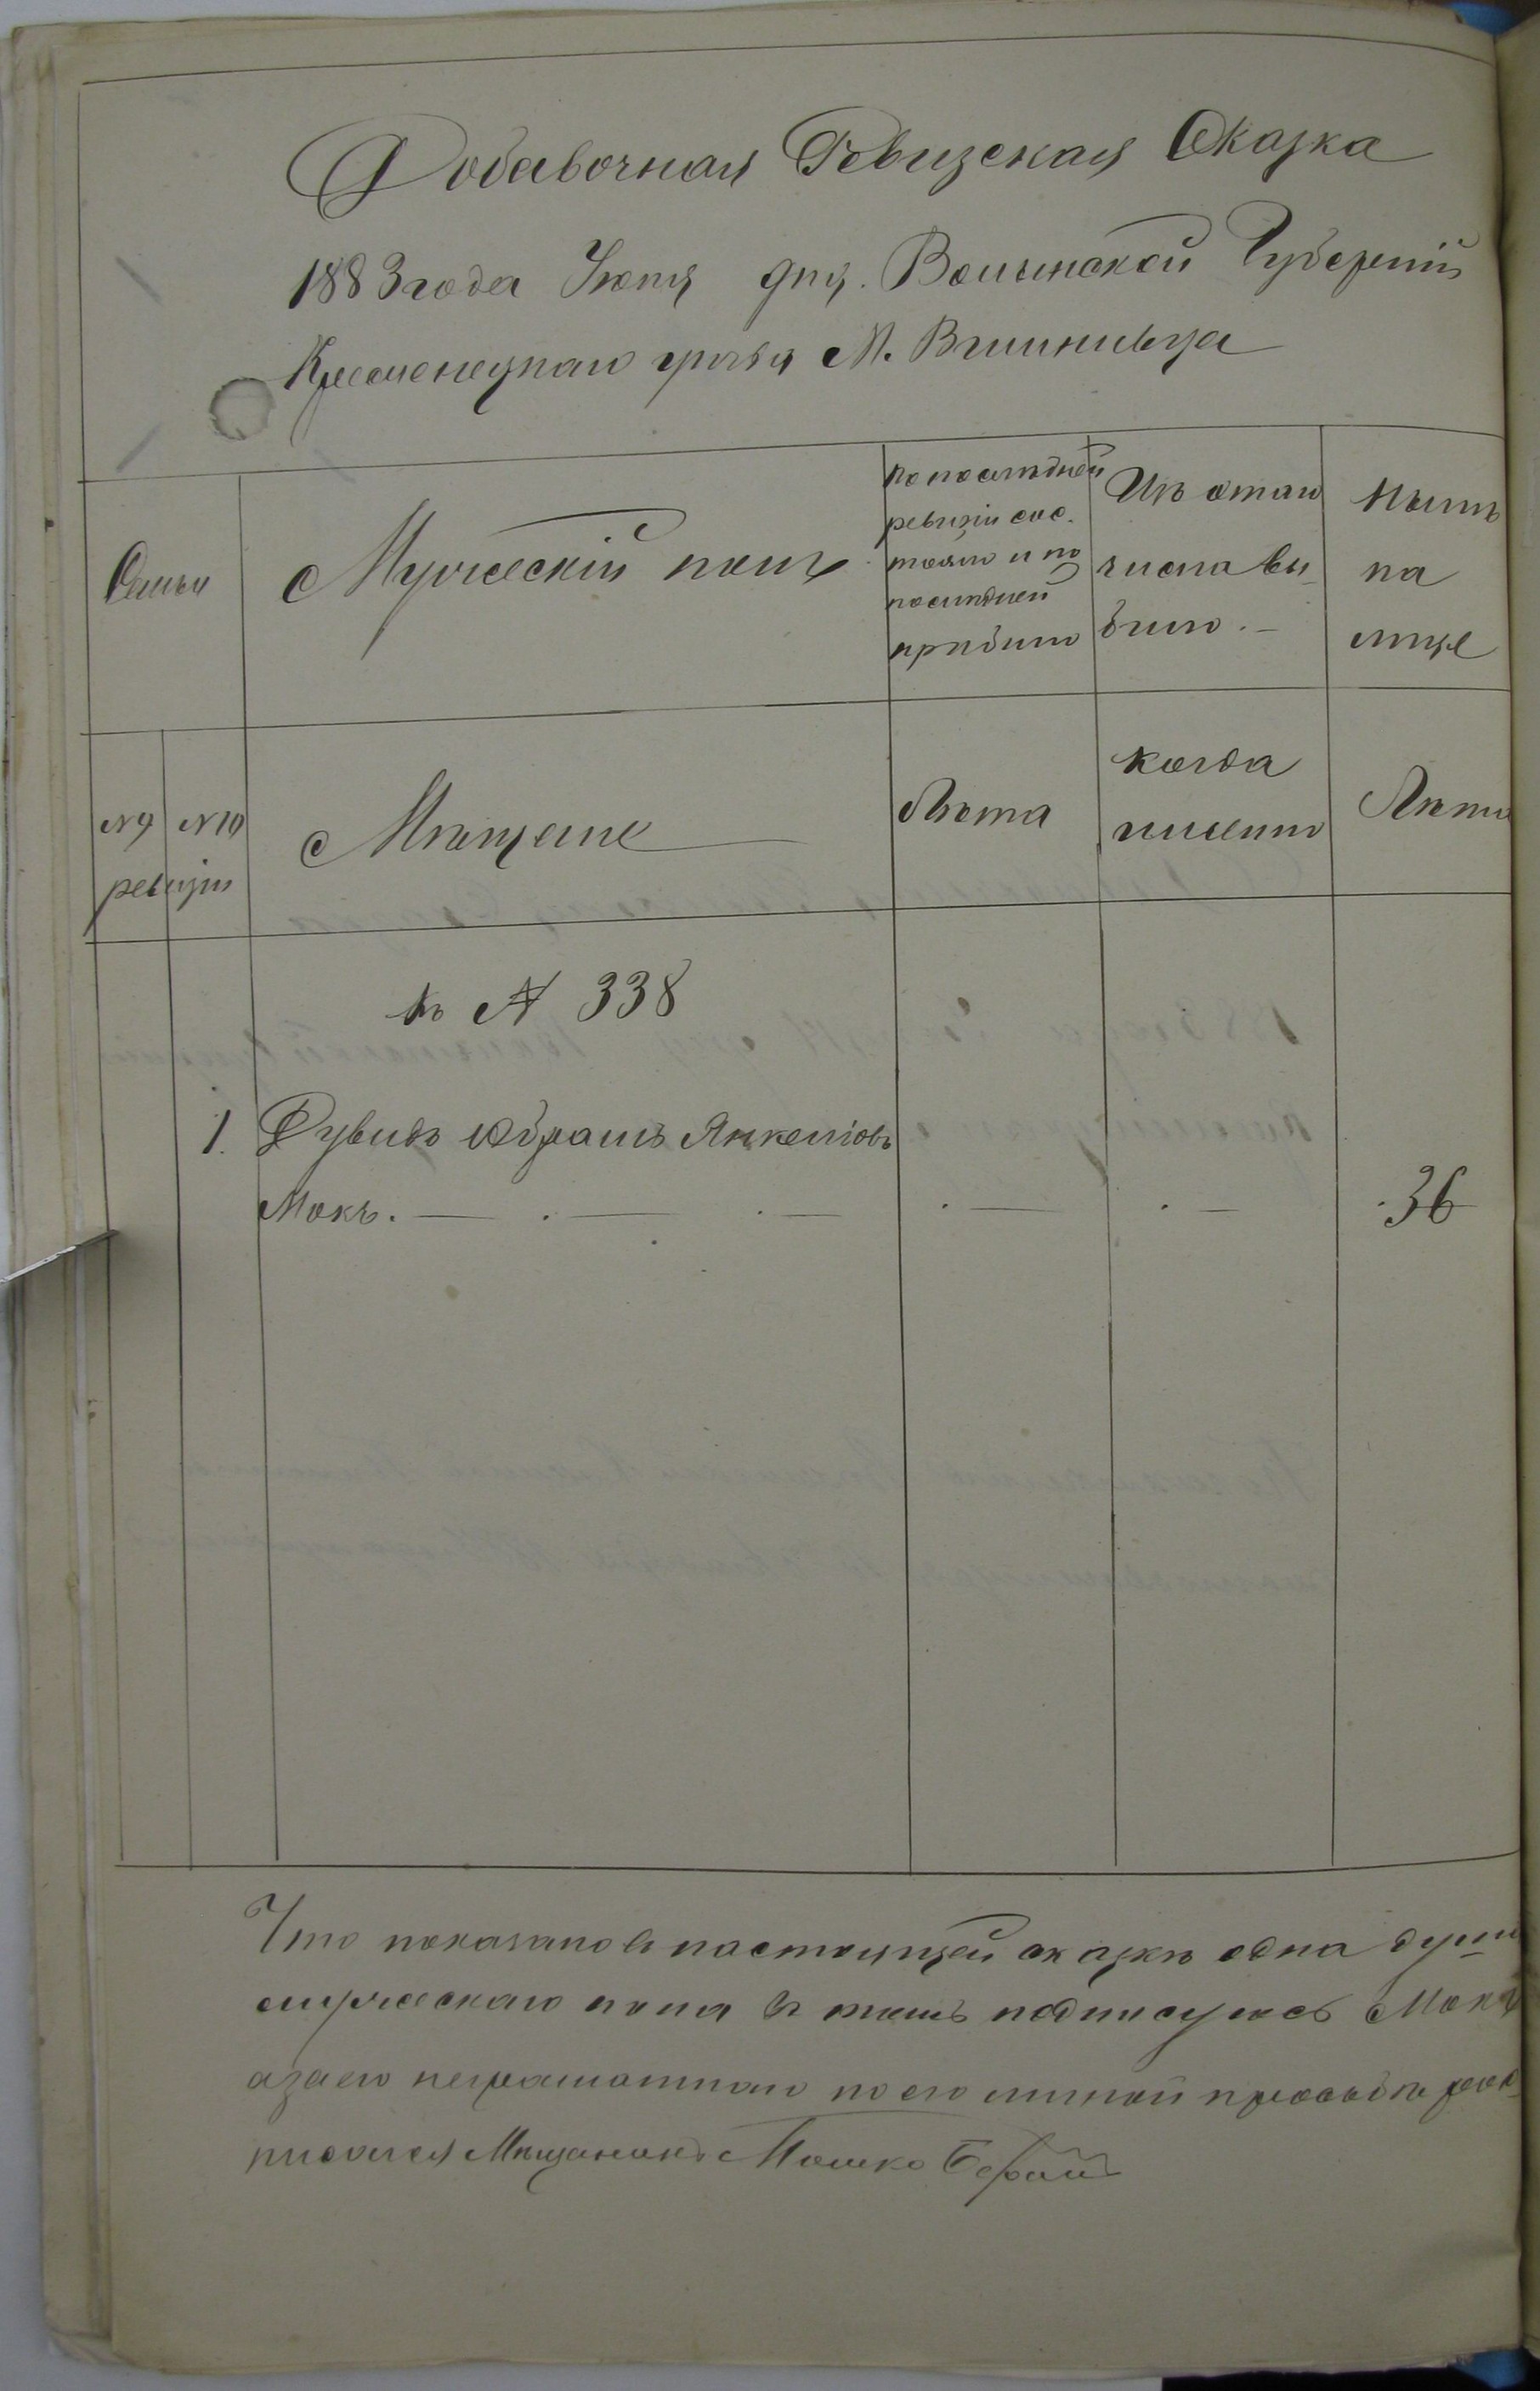 Добавочная Ревизская Сказка
1883 года Июня дня. Волынской Губерніи
Кременецкаго уѣзда М. Вишнивца
Семьи
Мужескій полъ
По послѣдней
ревизіи сос.
тояло и по
послѣдней
прибыло
Изъ етаго
числа вы
было. —
Нынѣ
на
лице
№ 9 № 10
ревизіи
Мѣщане
Лѣта
когда
именно
Лѣта
къ № 338
1. Рувинъ Абрамъ Янкеліовъ
Мокъ. — . — . — . — . — 36
Что показано въ настоящей сказкѣ одна душа
мужескаго пола въ томъ подписуюсь Мокъ
азаего неграмотнаго по его личной просьбѣ рос
писался Мещанинъ Мошко